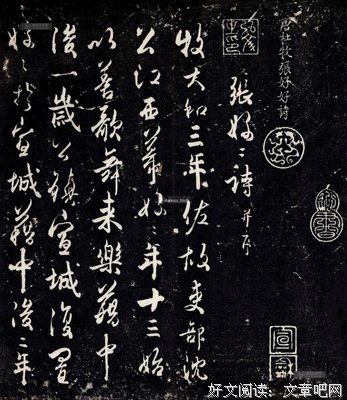 唐杜牧張好好詩
張好〻詩 并序
牧大和三年佐故吏部沈
公江西幕好〻年十三始
以善歌舞来樂籍中
後一歲公鎮宣城復置
好〻於宣城籍中後二年
好文阅读：文章吧网